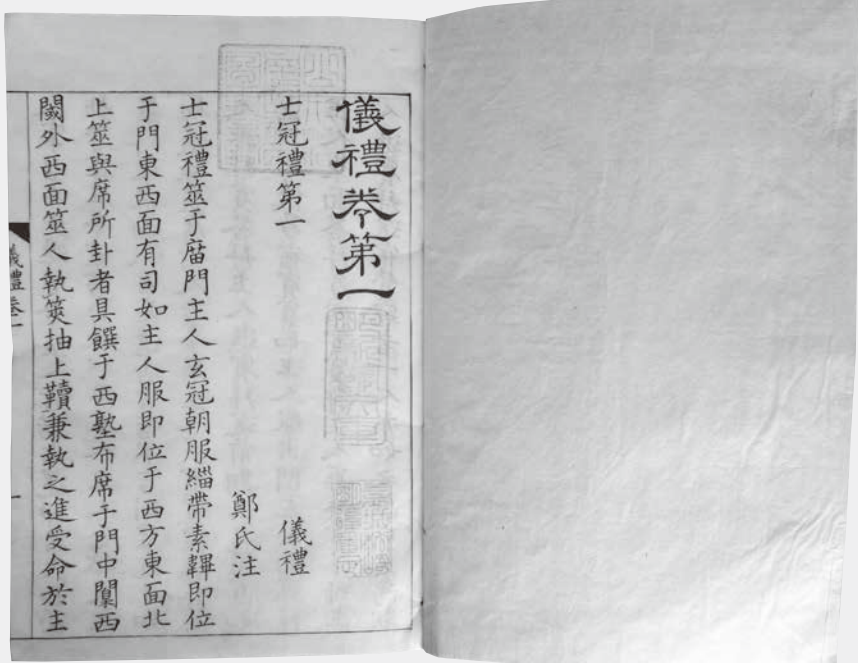 儀禮卷第一
士冠禮第一 儀禮
鄭氏注
士冠禮筮于庿門主人玄冠朝服緇帶素韠即位
于門東西面有司如主人服即位于西方東面北
上筮與席所卦者具饌于西塾布席于門中闑西
閾外西面筮人執筴抽上韇兼執之進受命於主
儀禮卷一
一